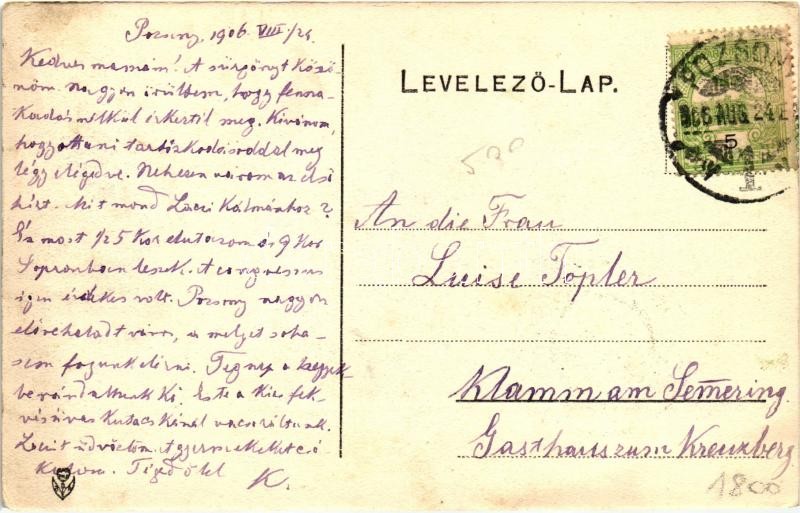 Pozsony, 1906. VIII/24
Kedves mamám! A sürgönyt köszö-
nöm. Nagyon örültem, hogy fenna-
kadás nélkül érkeztél meg. Kivánom,
hogy ottani tartózkodásoddal meg
légy elégedve. Nehezen várom az első
hírt. Mit mond Laczi Kálmánhoz?
Én most 1/2 5 kor elutazom és 9 kor
Sopronban leszek. A congressus
igen érdekes volt. Pozsony nagyon
előrehaladt város, a melyet soha-
sem fogunk elérni. Tegnap a hegyek-
be rándultunk ki. Este a
vacsoráltunk.
üdvözlöm. A gyermekeket csó-
kolom. Téged ölel
K.
LEVELEZŐ-LAP.
POZSONY
906 AUG 24
5
530
An die Frau
Luise Töpler
Klamm am Semmering
Gasthaus zum Kreuzberg
1800